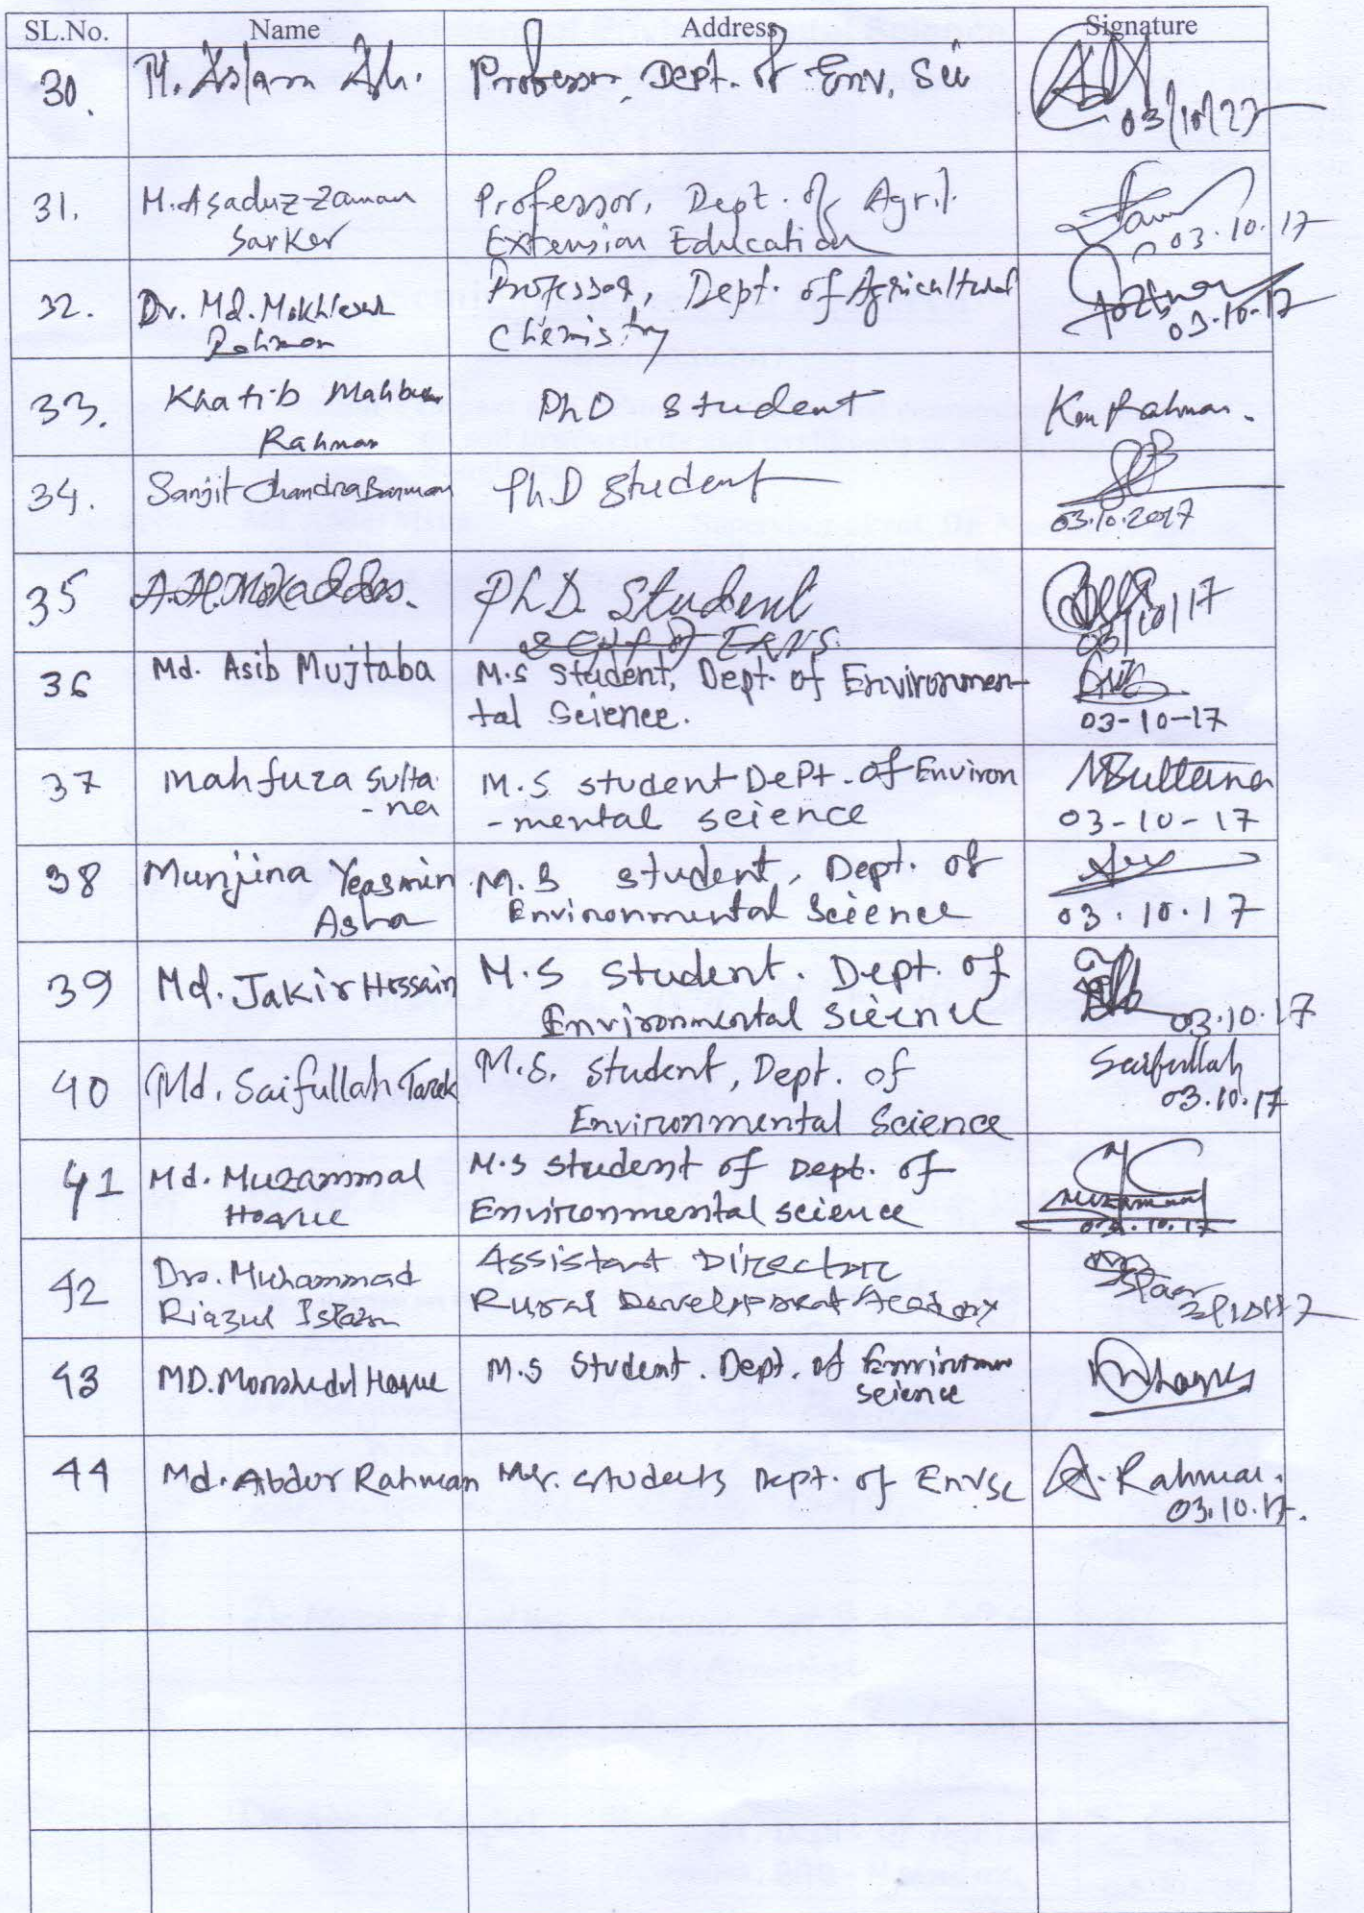 SL.No. Name Address Signature
30. M. Aslam Ali. Professor, Dept. of Env, Sci
03/10/17
31. M. Asaduzzaman Professor, Dept. of Agril.
Sarker Extension Education 03.10.17
32. Dr. Md. Mokhlesur Professor, Dept. of Agricultural
Rahman Chemistry 03.10.17
33. Khatib Mahbubur PhD Student Rahman.
Rahman
34. Sanjit Chandra Barman Ph.D Student
03.10.2017
35 Mokaddas. Ph.D. Student /10/17
of ENVS.
36 Md. Asib Mujtaba M.S Student, Dept. of Environmen-
tal Science. 03-10-17
37 Mahfuza Sulta M.S student Dept. of Environ MSultana
-na -mental science 03-10-17
38 Munjina Yeasmin M.S student, Dept. of
Asha Environmental Science 03.10.17
39 Md. Jakir Hossain M.S Student. Dept. of
Environmental Science 03.10.17
40 Md. Saifullah Tarek M.S. Student, Dept. of Saifullah
Environmental Science 03.10.17
41 Md. Muzammal M.S Student of Dept. of
Hoque Environmental science Muzammal
03.10.17
42 Dr. Muhammad Assistant Director
Riazul Islam Rural Development Academy
43 MD. Morshedul Hoque M.S Student. Dept. of
Science
44 Md. Abdur Rahman students Dept. of EnvSc A. Rahman.
03.10.17.